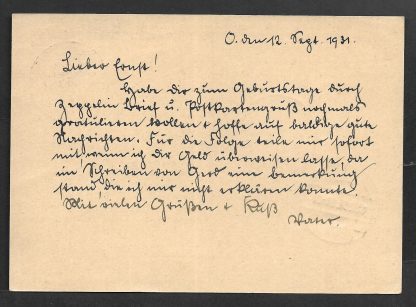 O. den 12. Sept. 1931.
Lieber Ernst!
Habe dir zum Geburtstage durch
Zeppelin Brief u. Postkartengruß nochmals
gratulieren wollen + hoffe auf baldige gute
Nachrichten. Für die Folge teile mir sofort
mit wenn ich dir Geld überweisen lasse, da
im Schreiben von Gerd eine bemerkung
stand, die ich mir nicht erklären konnte.
Mit vielen Grüßen + Kuß
Vater.